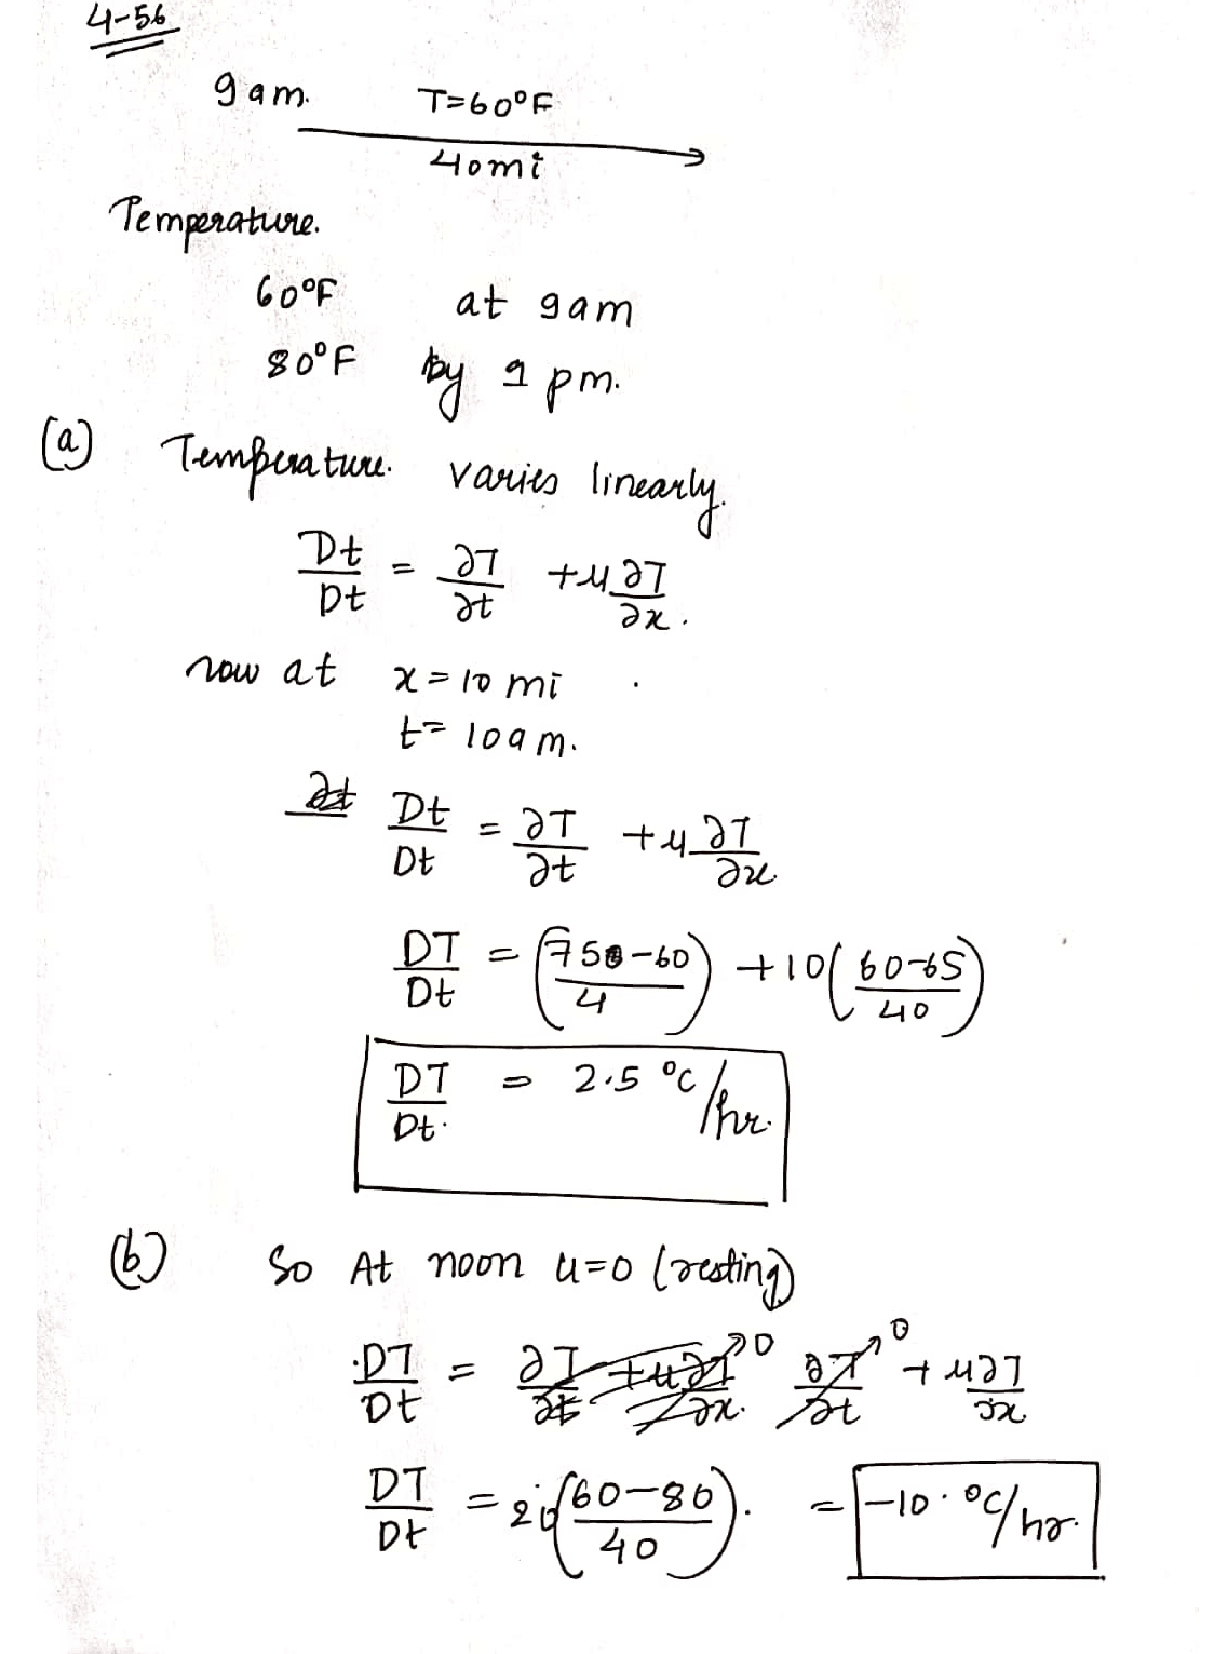 4-56
9 am. T=60°F
40mi
Temperature.
60°F at 9am
80°F by 1 pm.
(a) Temperature varies linearly.
Dt/Dt = ∂T/∂t + u ∂T/∂x.
now at x = 10 mi
t = 10am.
Dt/Dt = ∂T/∂t + u ∂T/∂x
DT/Dt = ( -60 / 4) + 10(60-65 / 40)
DT/Dt = 2.5 °C/hr.
(b) So At noon u=0 (resting)
DT/Dt = ∂T/∂t + u ∂T/∂x 0 ∂T/∂t 0 + u ∂T/∂x
DT/Dt = 20(60-80 / 40). = -10. °C/hr.